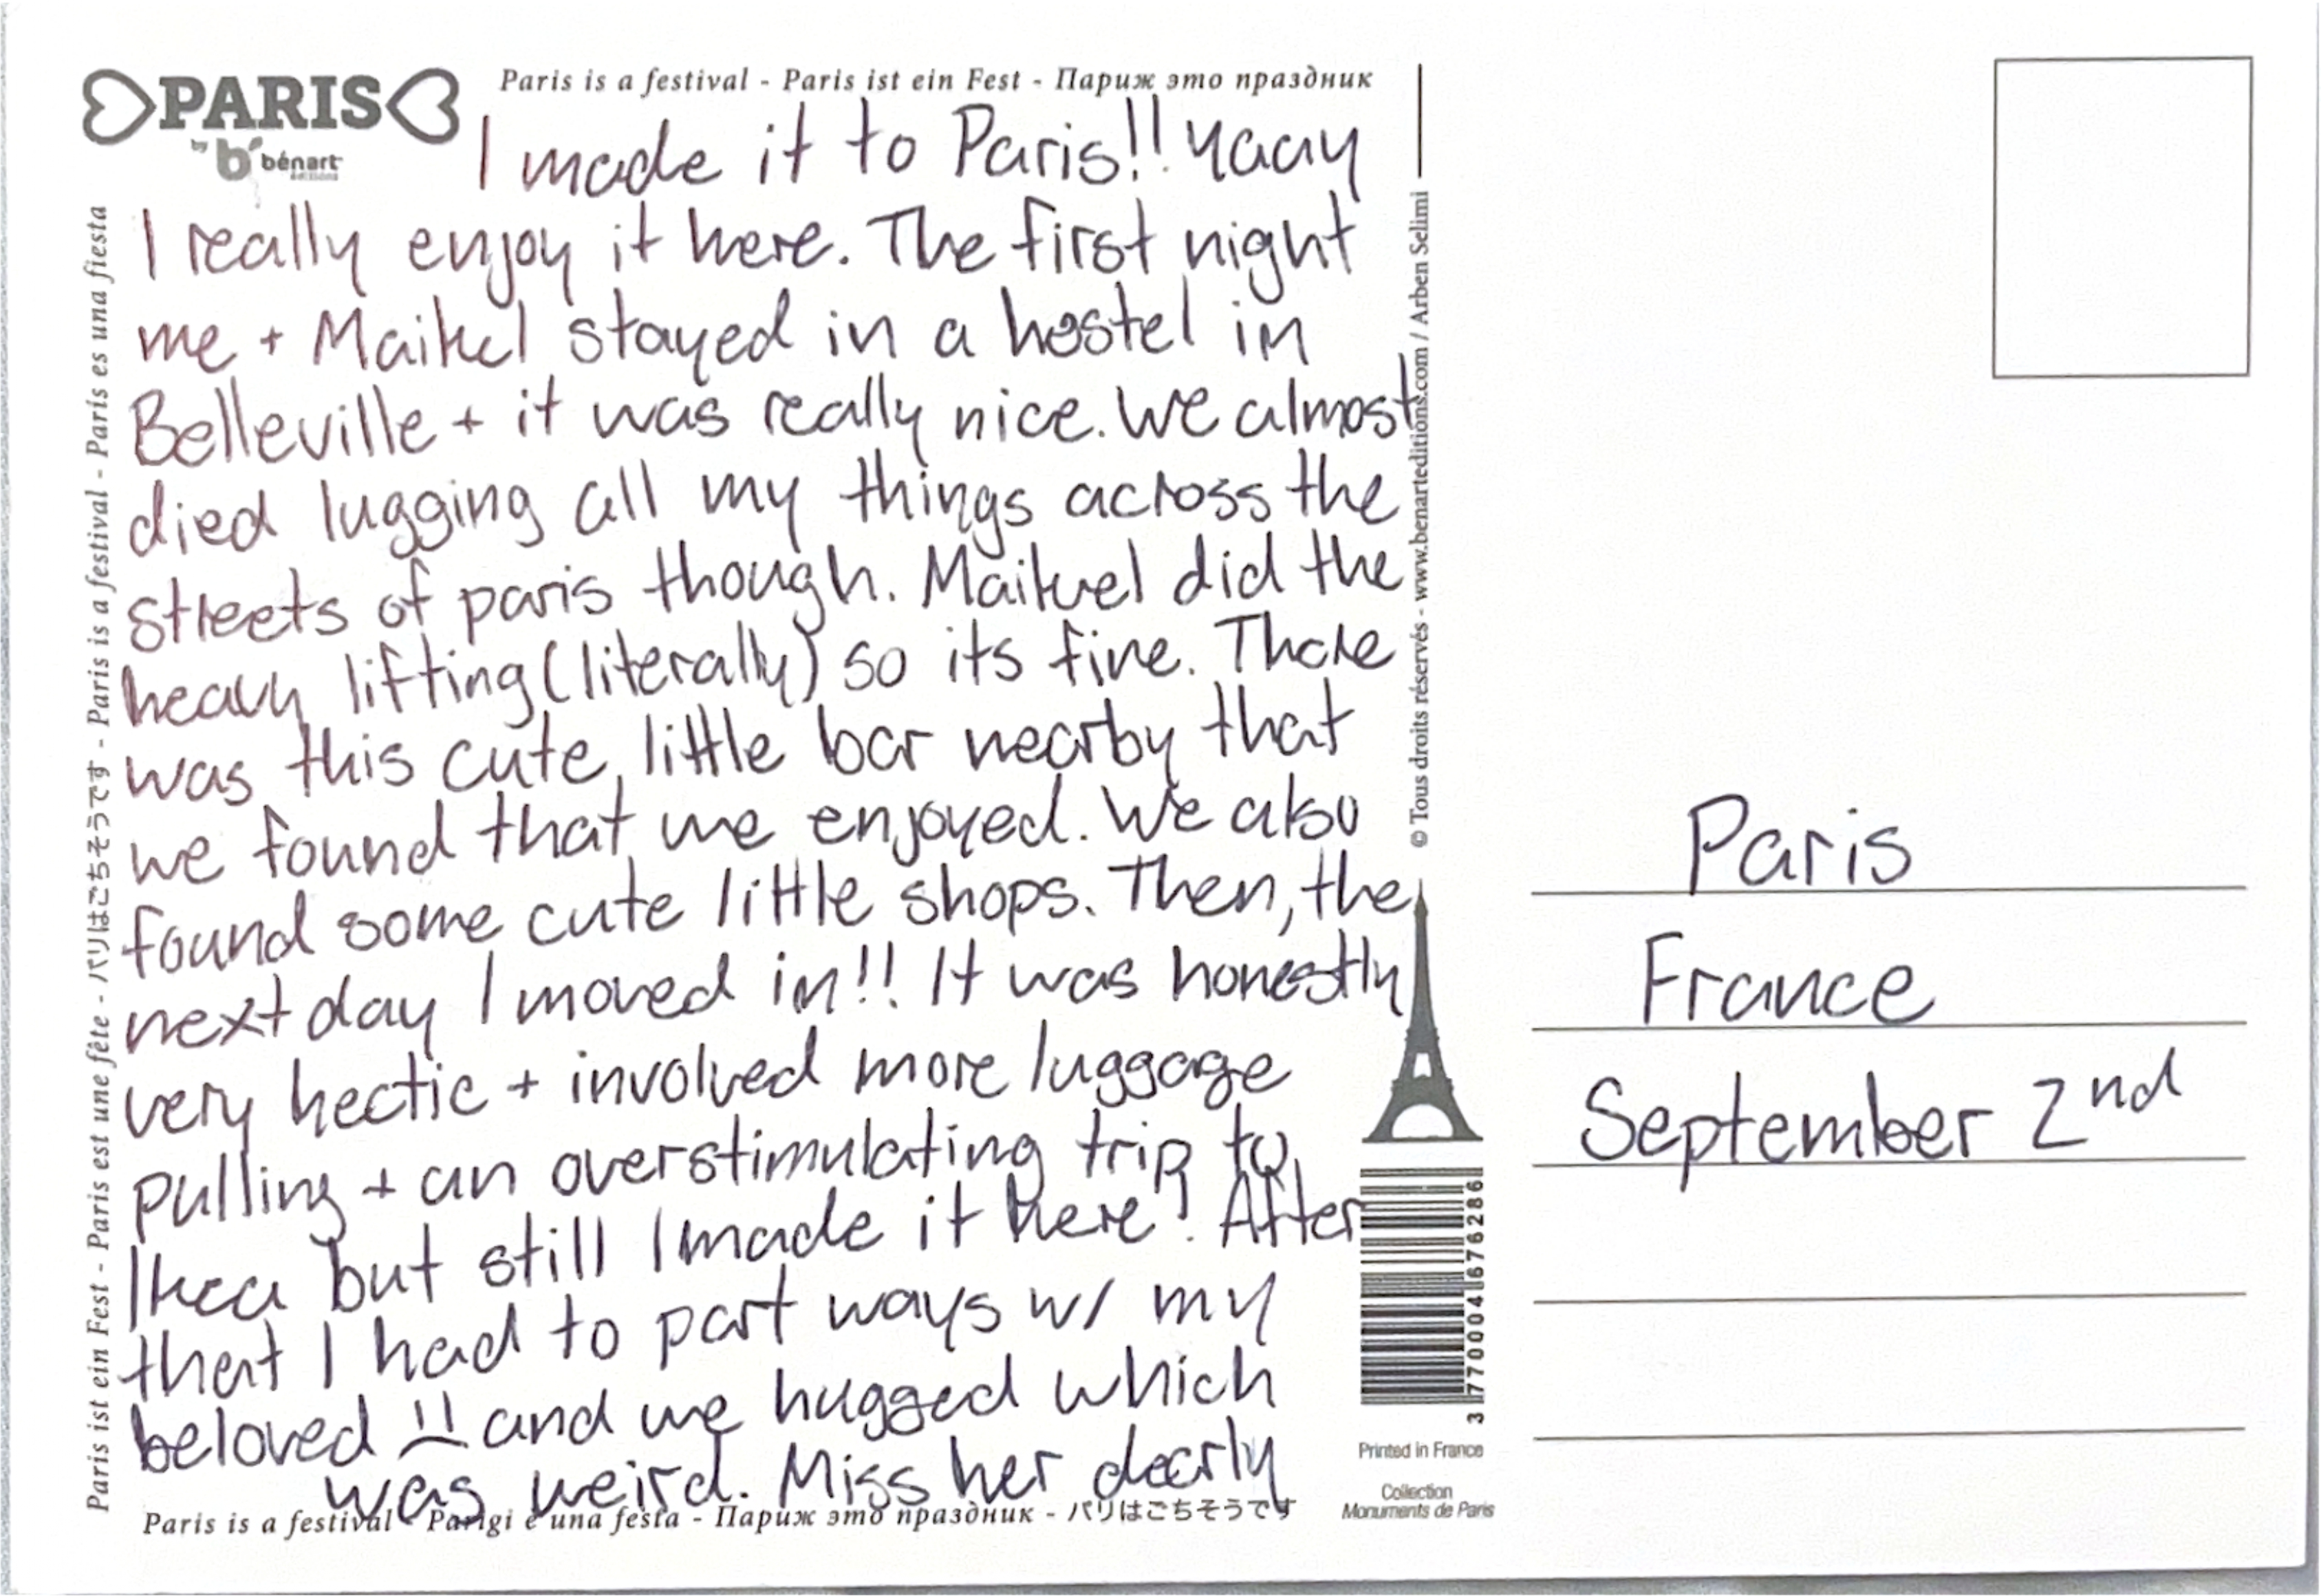 PARIS
by b bénart
éditions
Paris is a festival - Paris ist ein Fest - Париж это праздник
I made it to Paris!! Yaay
I really enjoy it here. The first night
me + Maikel stayed in a hostel in
Belleville + it was really nice. We almost
died lugging all my things across the
streets of paris though. Maikel did the
heavy lifting (literally) so its fine. There
was this cute little bar nearby that
we found that we enjoyed. We also
found some cute little shops. Then, the
next day I moved in!! It was honestly
very hectic + involved more luggage
pulling + an overstimulating trip to
Ikea but still I made it here! After
that I had to part ways w/ my
beloved :( and we hugged which
was weird. Miss her dearly
Paris is a festival - Parigi è una festa - Париж это праздник - パリはごちそうです
Paris ist ein Fest - Paris est une fête - パリはごちそうです - Paris is a festival - Paris es una fiesta
© Tous droits réservés - www.benarteditions.com / Arben Selimi
3 770004 676286
Printed in France
Collection
Monuments de Paris
Paris
France
September 2nd